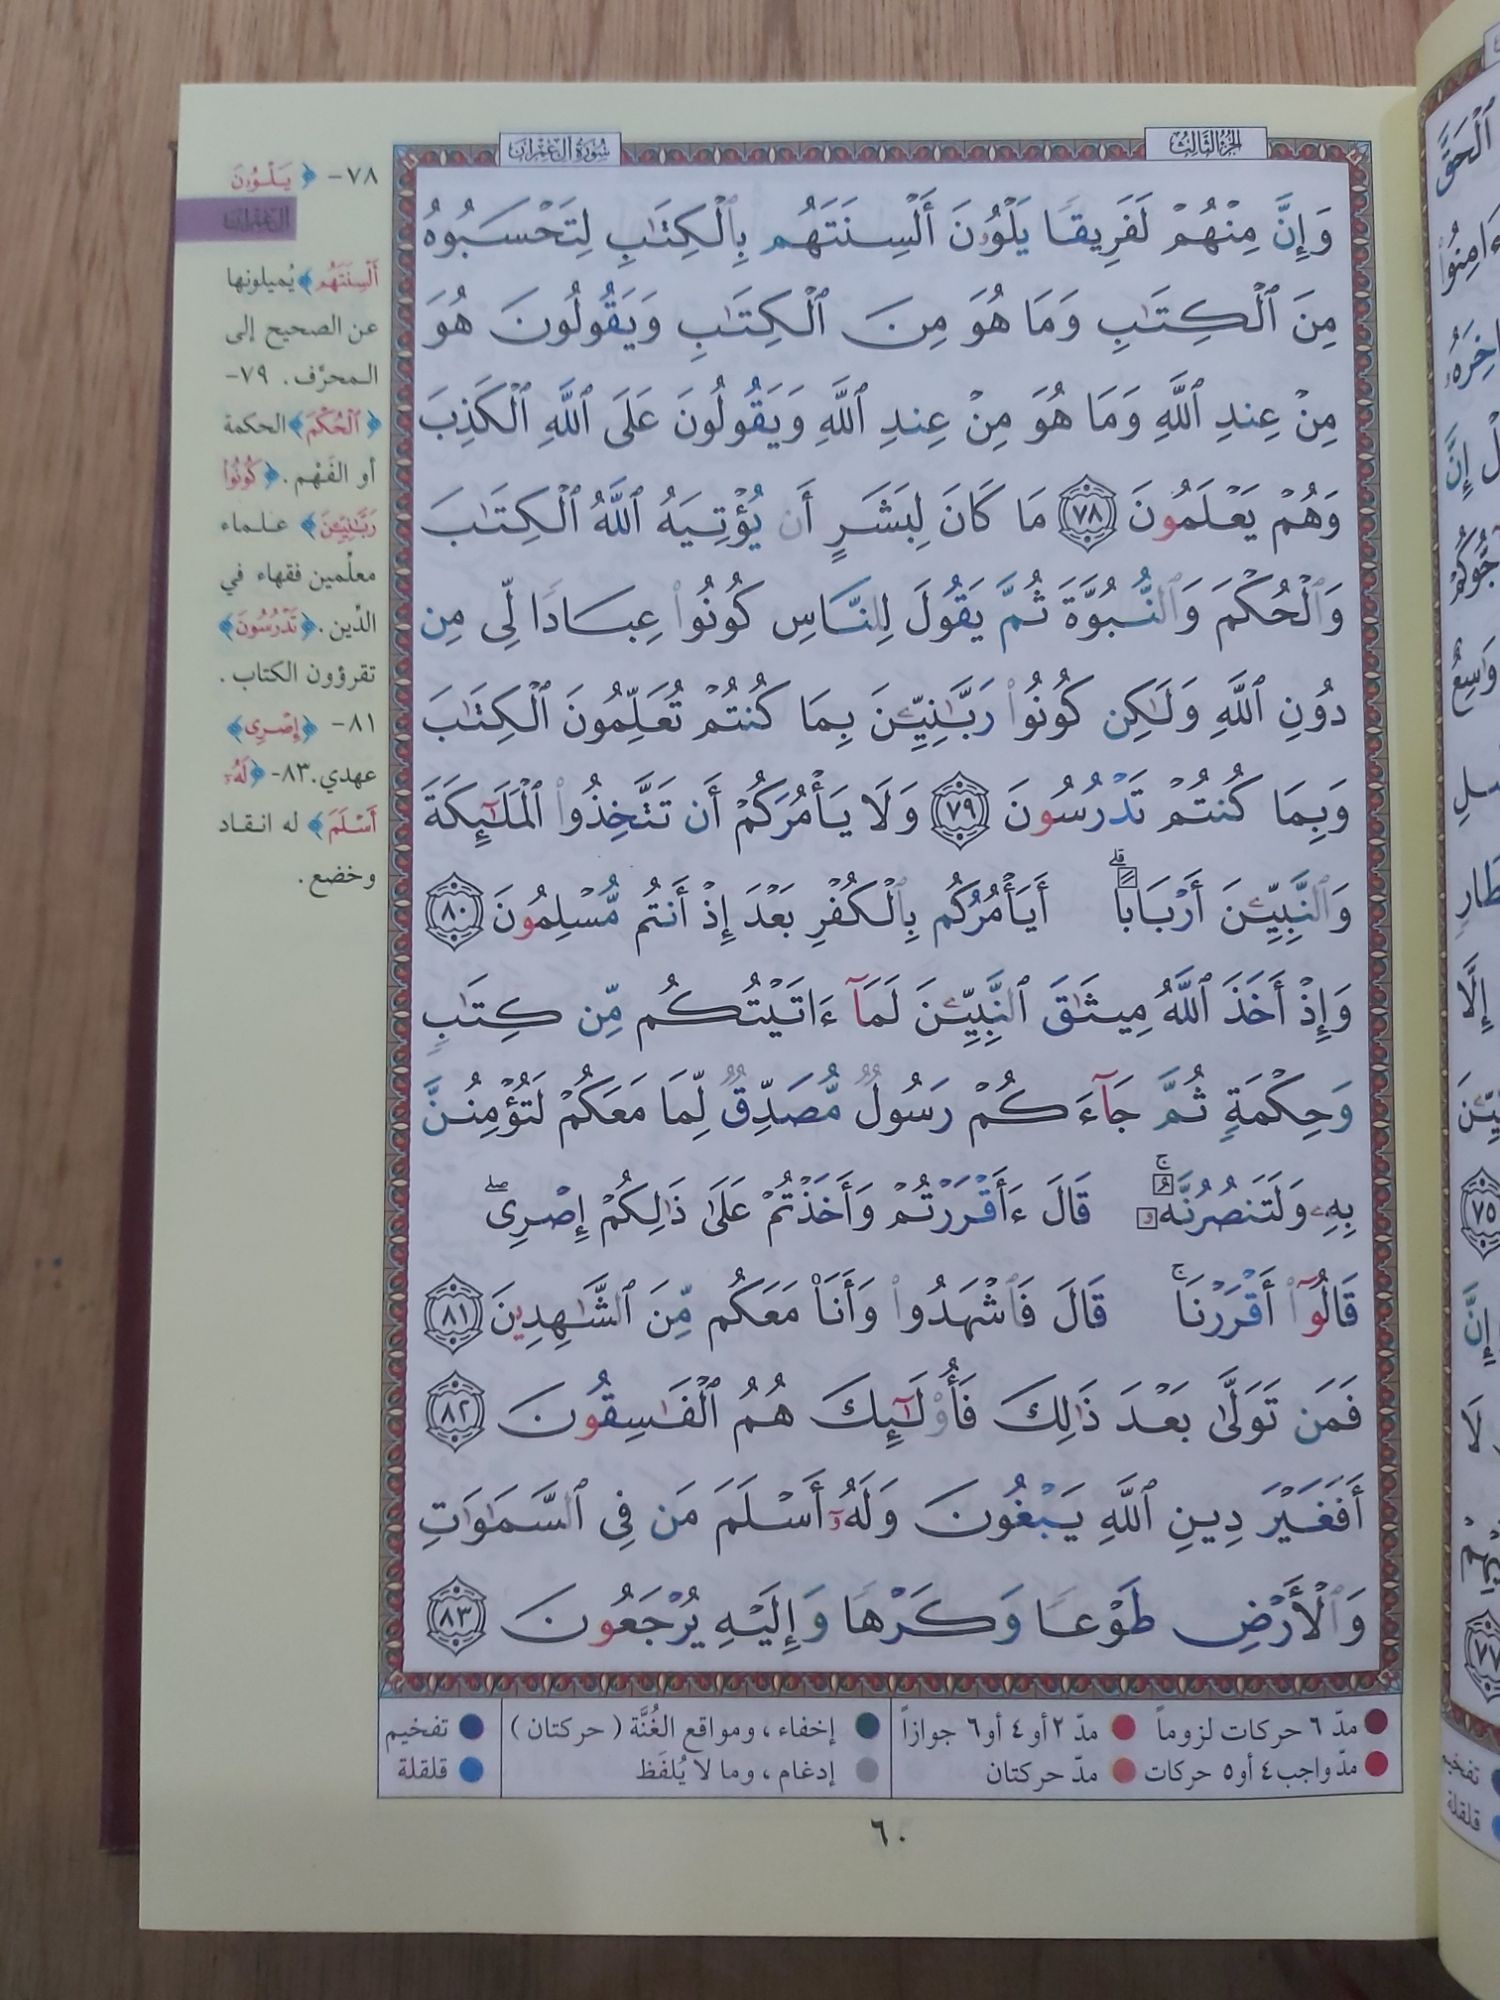 الجزء الثالث
سورة آل عمران
وَإِنَّ مِنْهُمْ لَفَرِيقًا يَلْوُۥنَ أَلْسِنَتَهُم بِٱلْكِتَٰبِ لِتَحْسَبُوهُ
مِنَ ٱلْكِتَٰبِ وَمَا هُوَ مِنَ ٱلْكِتَٰبِ وَيَقُولُونَ هُوَ
مِنْ عِندِ ٱللَّهِ وَمَا هُوَ مِنْ عِندِ ٱللَّهِ وَيَقُولُونَ عَلَى ٱللَّهِ ٱلْكَذِبَ
وَهُمْ يَعْلَمُونَ ٧٨ مَا كَانَ لِبَشَرٍ أَن يُؤْتِيَهُ ٱللَّهُ ٱلْكِتَٰبَ
وَٱلْحُكْمَ وَٱلنُّبُوَّةَ ثُمَّ يَقُولَ لِلنَّاسِ كُونُوا۟ عِبَادًا لِّى مِن
دُونِ ٱللَّهِ وَلَٰكِن كُونُوا۟ رَبَّٰنِيِّۦنَ بِمَا كُنتُمْ تُعَلِّمُونَ ٱلْكِتَٰبَ
وَبِمَا كُنتُمْ تَدْرُسُونَ ٧٩ وَلَا يَأْمُرَكُمْ أَن تَتَّخِذُوا۟ ٱلْمَلَٰٓئِكَةَ
وَٱلنَّبِيِّۦنَ أَرْبَابًا ۗ أَيَأْمُرُكُم بِٱلْكُفْرِ بَعْدَ إِذْ أَنتُم مُّسْلِمُونَ ٨٠
وَإِذْ أَخَذَ ٱللَّهُ مِيثَٰقَ ٱلنَّبِيِّۦنَ لَمَآ ءَاتَيْتُكُم مِّن كِتَٰبٍ
وَحِكْمَةٍ ثُمَّ جَآءَكُمْ رَسُولٌ مُّصَدِّقٌ لِّمَا مَعَكُمْ لَتُؤْمِنُنَّ
بِهِۦ وَلَتَنصُرُنَّهُۥ ۚ قَالَ ءَأَقْرَرْتُمْ وَأَخَذْتُمْ عَلَىٰ ذَٰلِكُمْ إِصْرِى ۖ
قَالُوٓا۟ أَقْرَرْنَا ۚ قَالَ فَٱشْهَدُوا۟ وَأَنَا۠ مَعَكُم مِّنَ ٱلشَّٰهِدِينَ ٨١
فَمَن تَوَلَّىٰ بَعْدَ ذَٰلِكَ فَأُو۟لَٰٓئِكَ هُمُ ٱلْفَٰسِقُونَ ٨٢
أَفَغَيْرَ دِينِ ٱللَّهِ يَبْغُونَ وَلَهُۥٓ أَسْلَمَ مَن فِى ٱلسَّمَٰوَٰتِ
وَٱلْأَرْضِ طَوْعًا وَكَرْهًا وَإِلَيْهِ يُرْجَعُونَ ٨٣
٧٨- ﴿يَلْوُۥنَ
آل عمران
أَلْسِنَتَهُم﴾ يُميلونها
عن الصحيح إلى
المحرَّف. ٧٩-
﴿ٱلْحُكْمَ﴾ الحكمة
أو الفَهْم. ﴿كُونُوا۟
رَبَّٰنِيِّۦنَ﴾ علماء
معلِّمين فقهاء في
الدِّين. ﴿تَدْرُسُونَ﴾
تقرؤون الكتاب.
٨١- ﴿إِصْرِى﴾
عهدي. ٨٣- ﴿لَهُۥٓ
أَسْلَمَ﴾ له انقاد
وخضع.
مدّ ٦ حركات لزوماً مدّ ٢ أو ٤ أو ٦ جوازاً
مدّ واجب ٤ أو ٥ حركات مدّ حركتان
إخفاء، ومواقع الغُنَّة (حركتان)
إدغام، وما لا يُلفَظ
تفخيم
قلقلة
٦٠